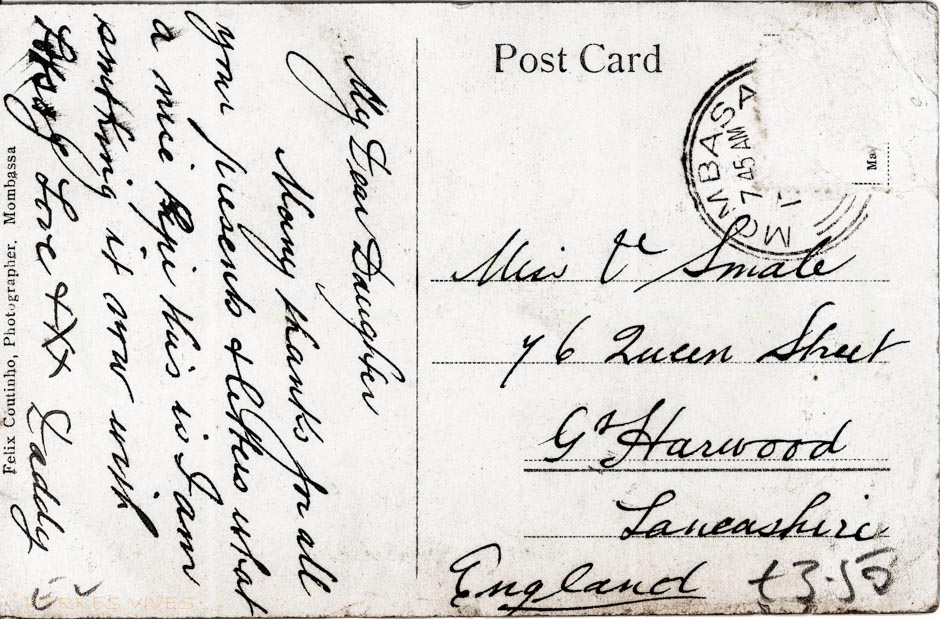 Post Card
MOMBASA
7 45 AM
Ma
My Dear Daughter
Many thanks for all
your presents & letters what
a nice Pipe this is I am
smoking it now with
Love XXX Daddy
Felix Coutinho, Photographer, Mombassa
Miss V Smale
76 Queen Street
Gt Harwood
Lancashire
England
£3.50